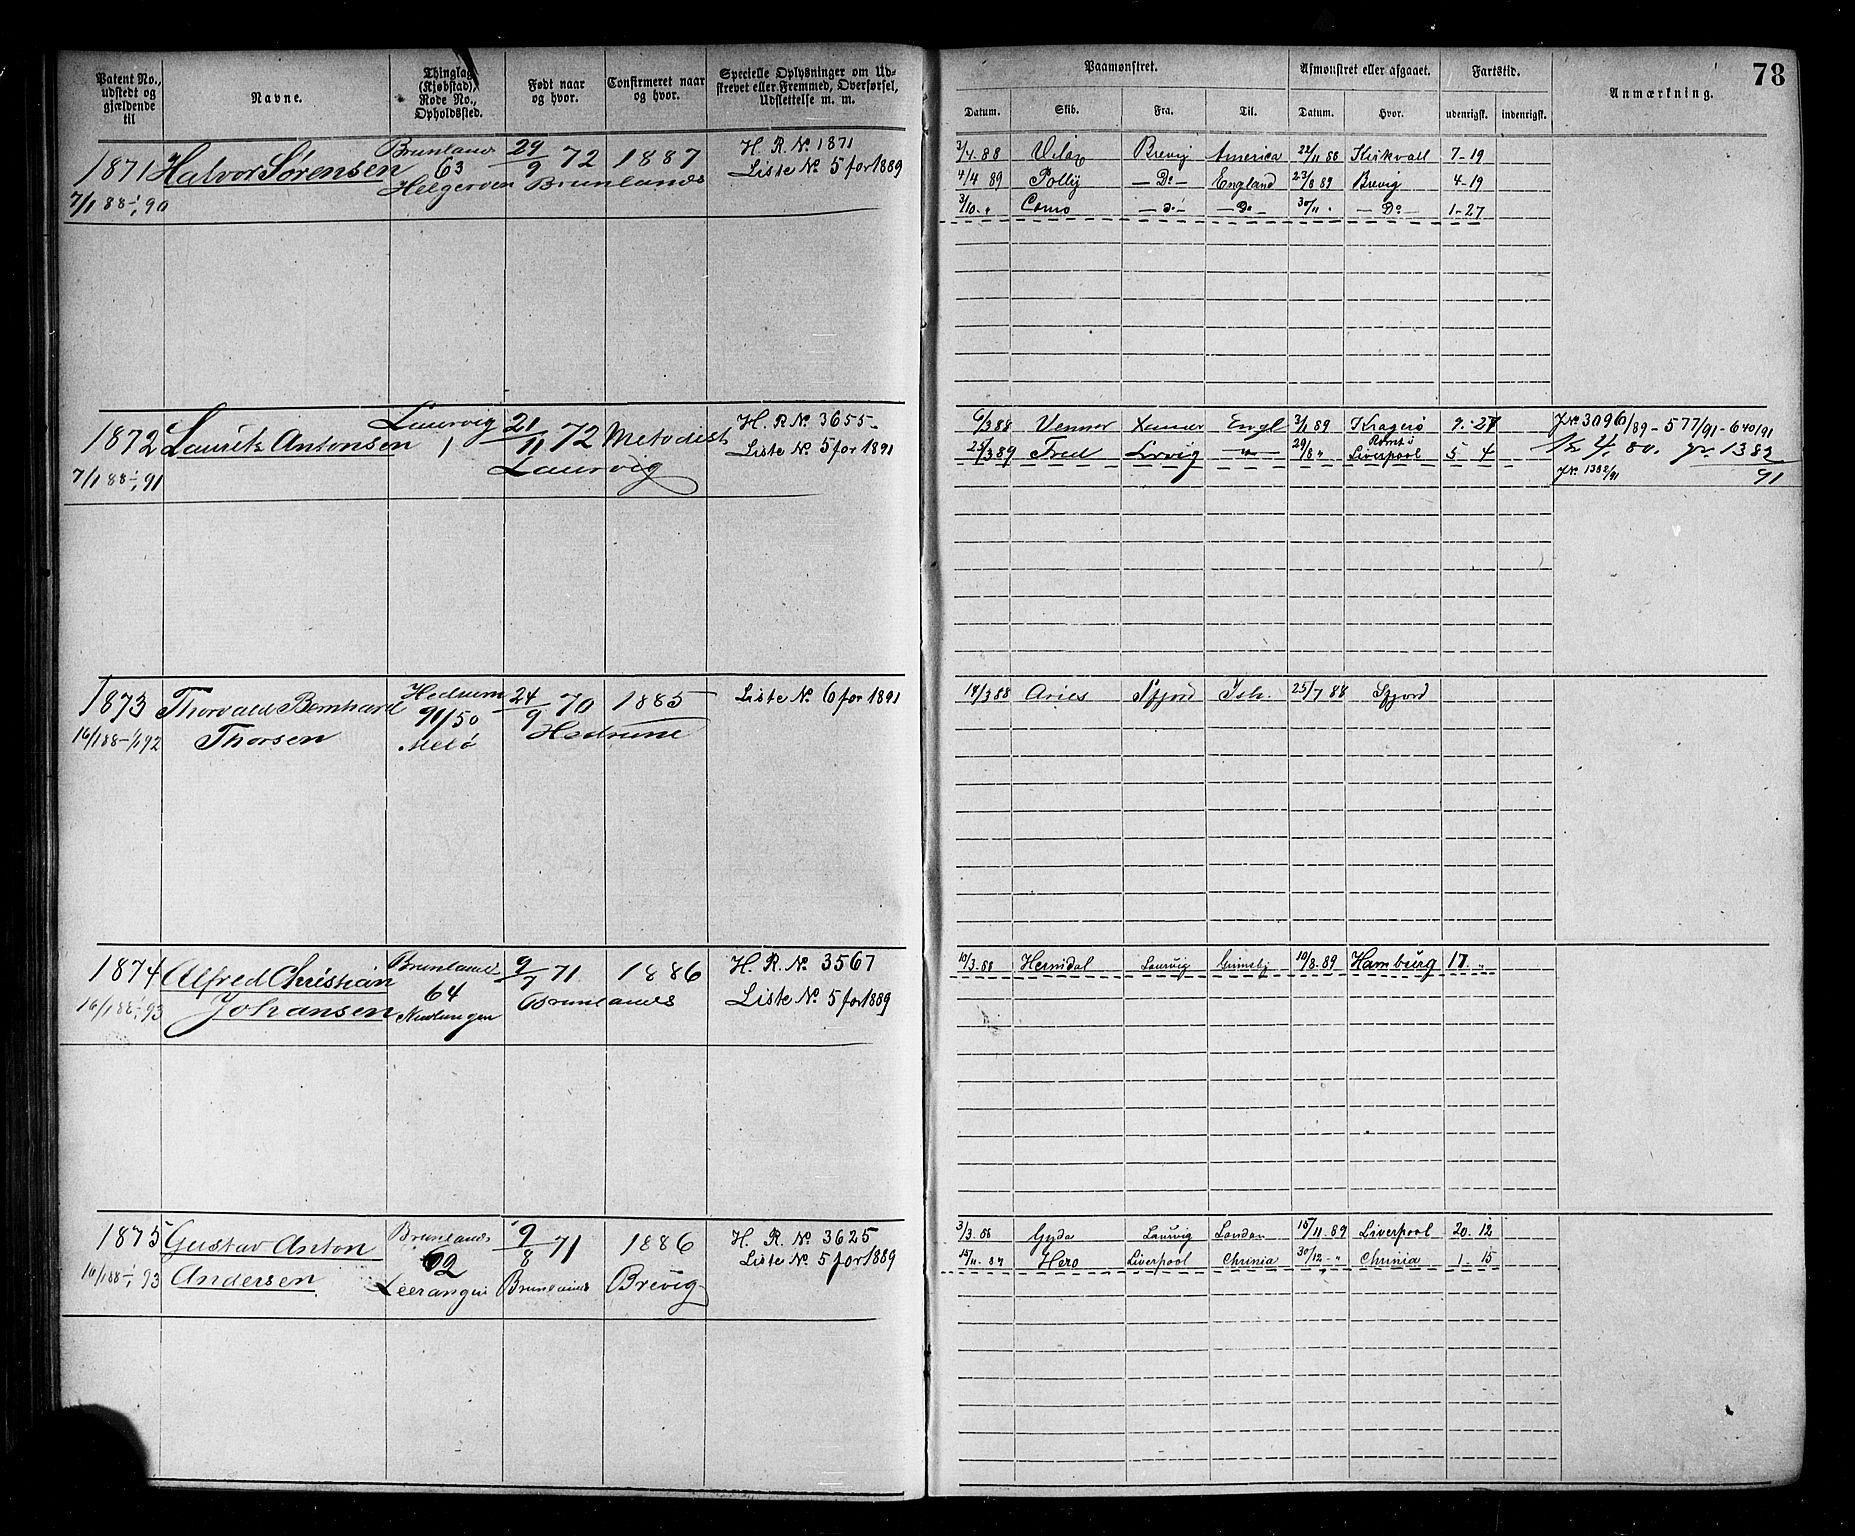 78
Patent No., udstedt og gjældende til
Navne.
Thinglag (Kjøbstad), Rode No., Opholdssted.
Født naar og hvor.
Confirmeret naar og hvor.
Specielle Oplysninger om Udstrevet eller Fremmed, Overførsel, Udslettelse m. m.
Paamønstret.
Afmønstret eller afgaaet.
Fartstid.
Anmærkning.
Datum. Skib. Fra. Til. Datum. Hvor. udenrigst. indenrigst.
1871 Halvor Sørensen Brunlanes 29/9 72 1887 H. R. No 1871
63 Liste No. 5 for 1889
7/1 88 - 1/1 90 Helgeroen Brunlanes
3/4 88 Brevig America 22/11 88 Kirkvall 7-19
4/4 89 Polly — Do — England 23/8 89 Brevig 4-19
3/10 „ Como — d — — Do — 30/11 — Do — 1-27
1872 Lauritz Antonsen Laurvig 21/11 72 Metodist H. R. No 3655
1 Liste No. 5 for 1891
7/1 88 - 1/1 91 Laurvig
6/3 88 Engl 3/1 89 Kragerø 9. 27 J.No. 3096/89 - 577/91 - 640/91
25/3 89 Fred Lvrvig — „ — 29/8 „ Liverpool 5 4
J.No. 1382/91
1873 Thorvald Bernhard Hedrum 24/9 70 1885 Liste No. 6 for 1891
91/50
16/1 88 - 1/1 92 Thorsen Melø Hedrum
18/3 88 Aries Sfjord Ish. 25/7 88 Sfjord
1874 Alfred Christian Brunlanes 9/7 71 1886 H. R. No. 3567
64 Brunlanes Liste No. 5 for 1889
16/1 88 - 1/1 93 Johansen Nevlungen
10/3 88 Hernidal Laurvig Grimsby 10/8 89 Hamburg 17 „
1875 Gustav Anton Brunlanes 9/8 71 1886 H. R. No. 3625
62 Liste No. 5 for 1889
16/1 88 - 1/1 93 Andersen Brunlanes Brevig
3/3 88 Gyda Laurvig London 15/11 89 Liverpool 20. 12
15/11 89 Hero Liverpool Chrinia 30/12 „ Chrinia 1. 15